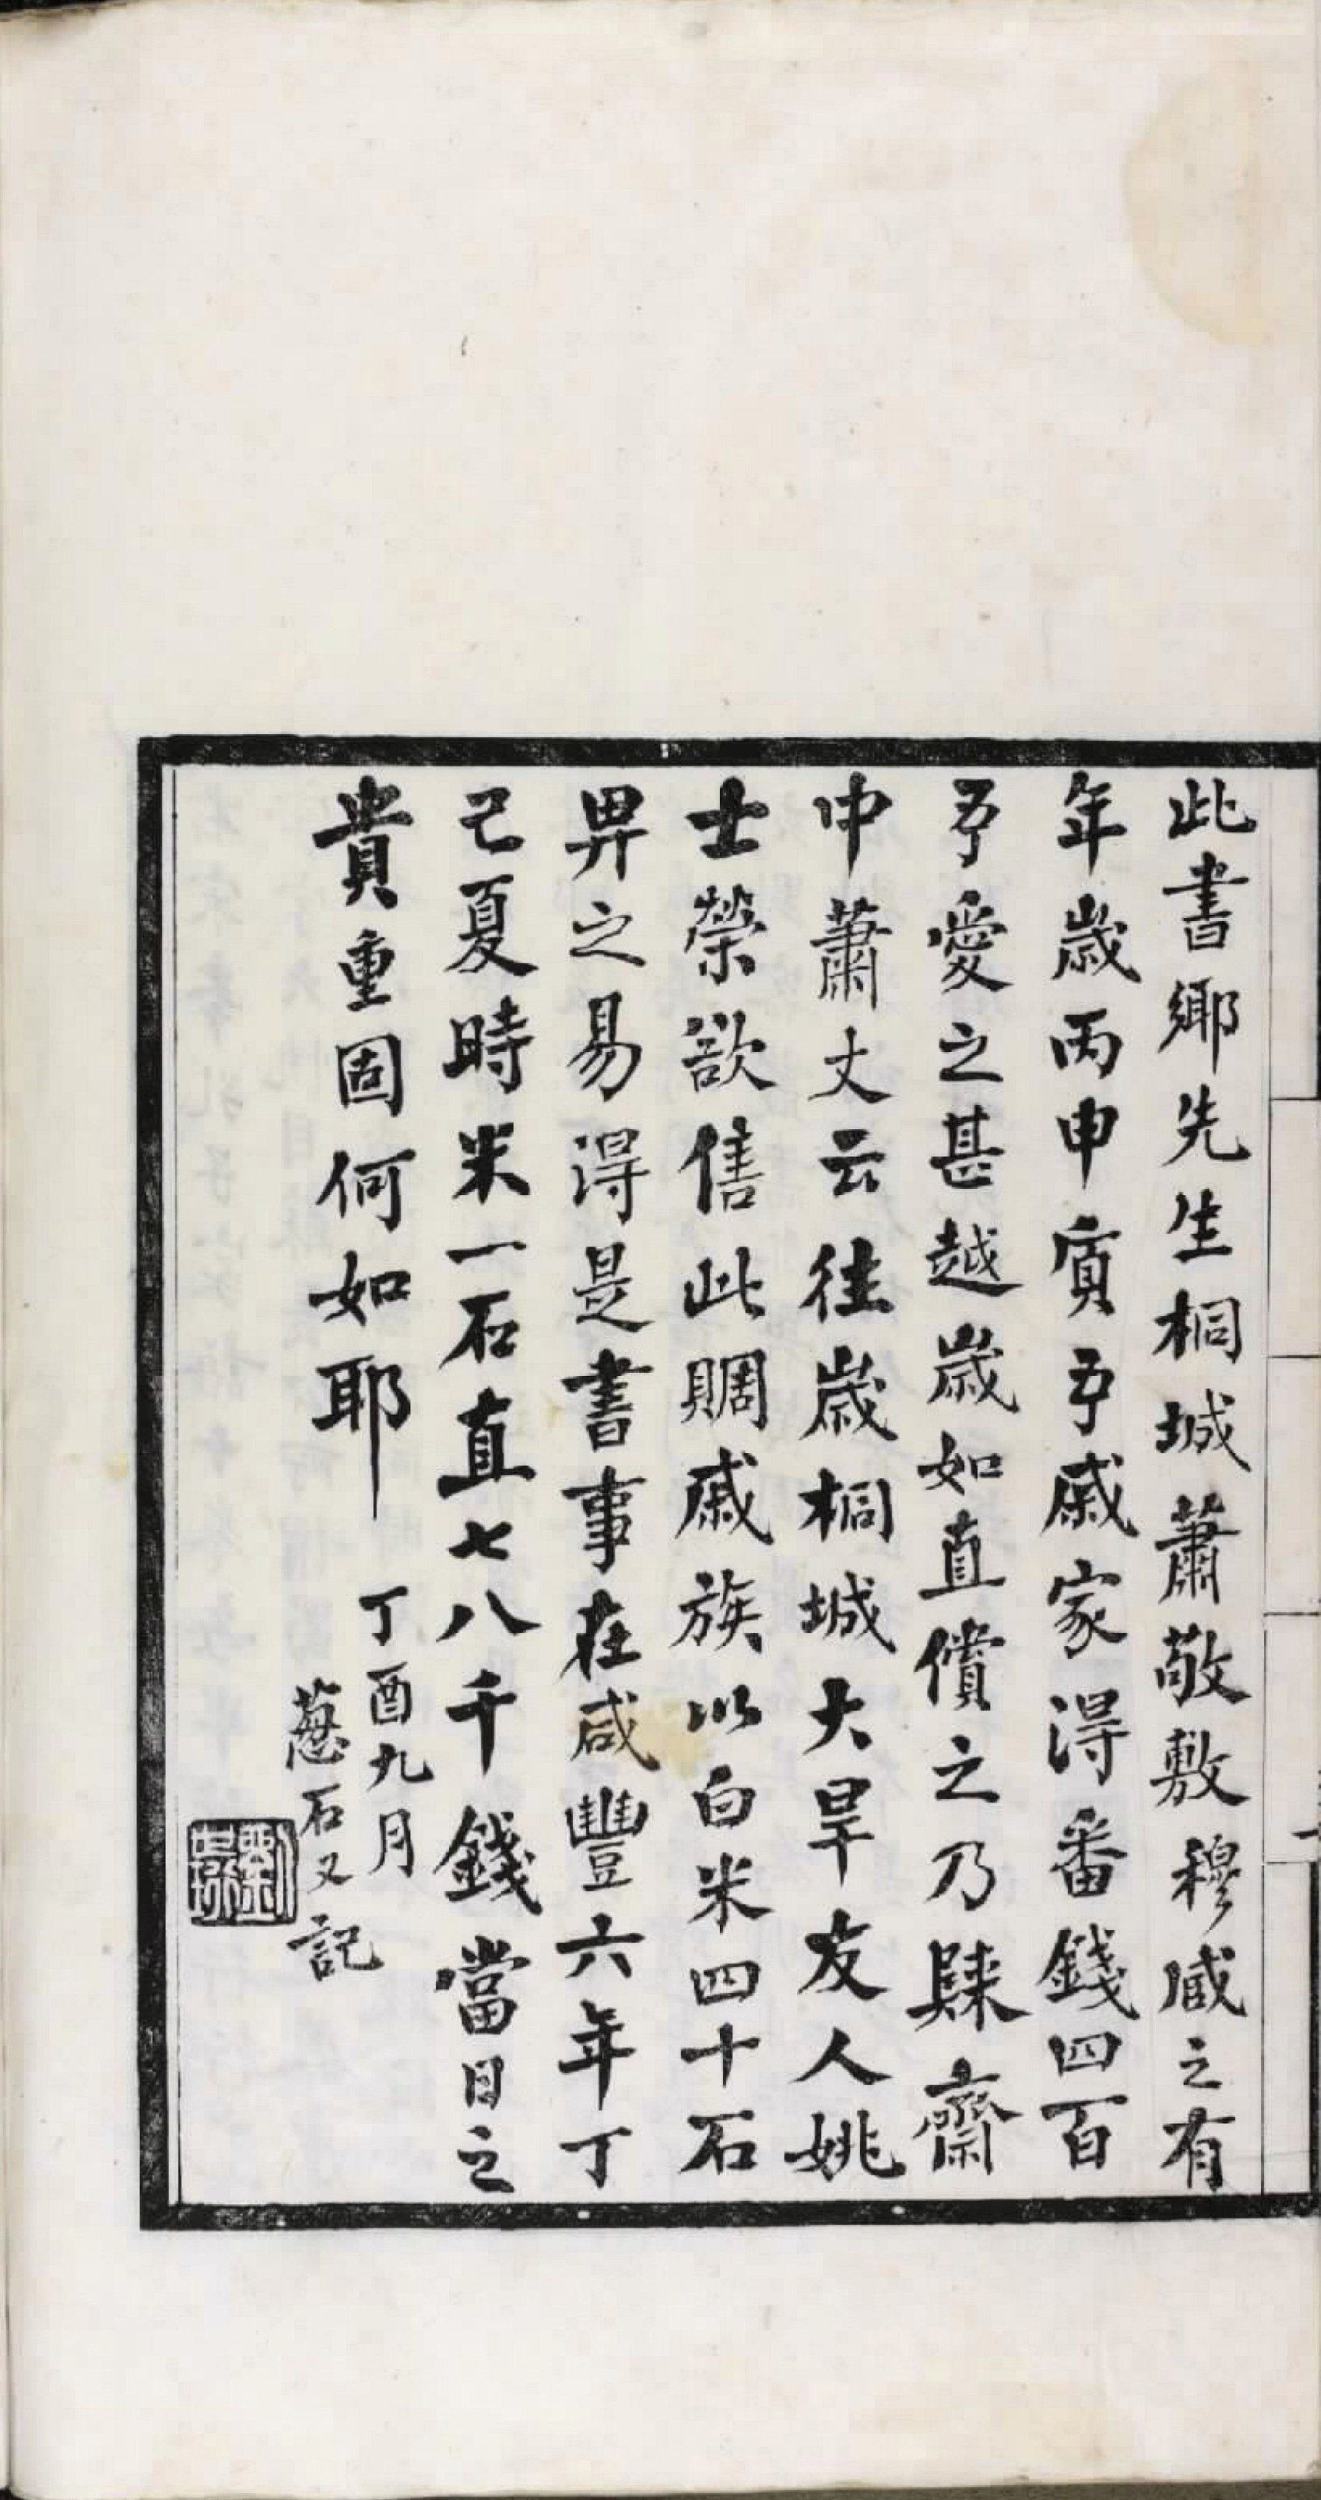 此書鄉先生桐城蕭敬敷穆臧之有
年歲丙申質予戚家得番錢四百
予愛之甚越歲如直償之乃歸齋
中蕭丈云往歲桐城大旱友人姚
士榮欲售此賙戚族以白米四十石
畀之易得是書事在咸豐六年丁
巳夏時米一石直七八千錢當日之
貴重固何如耶
丁酉九月
蔥石又記